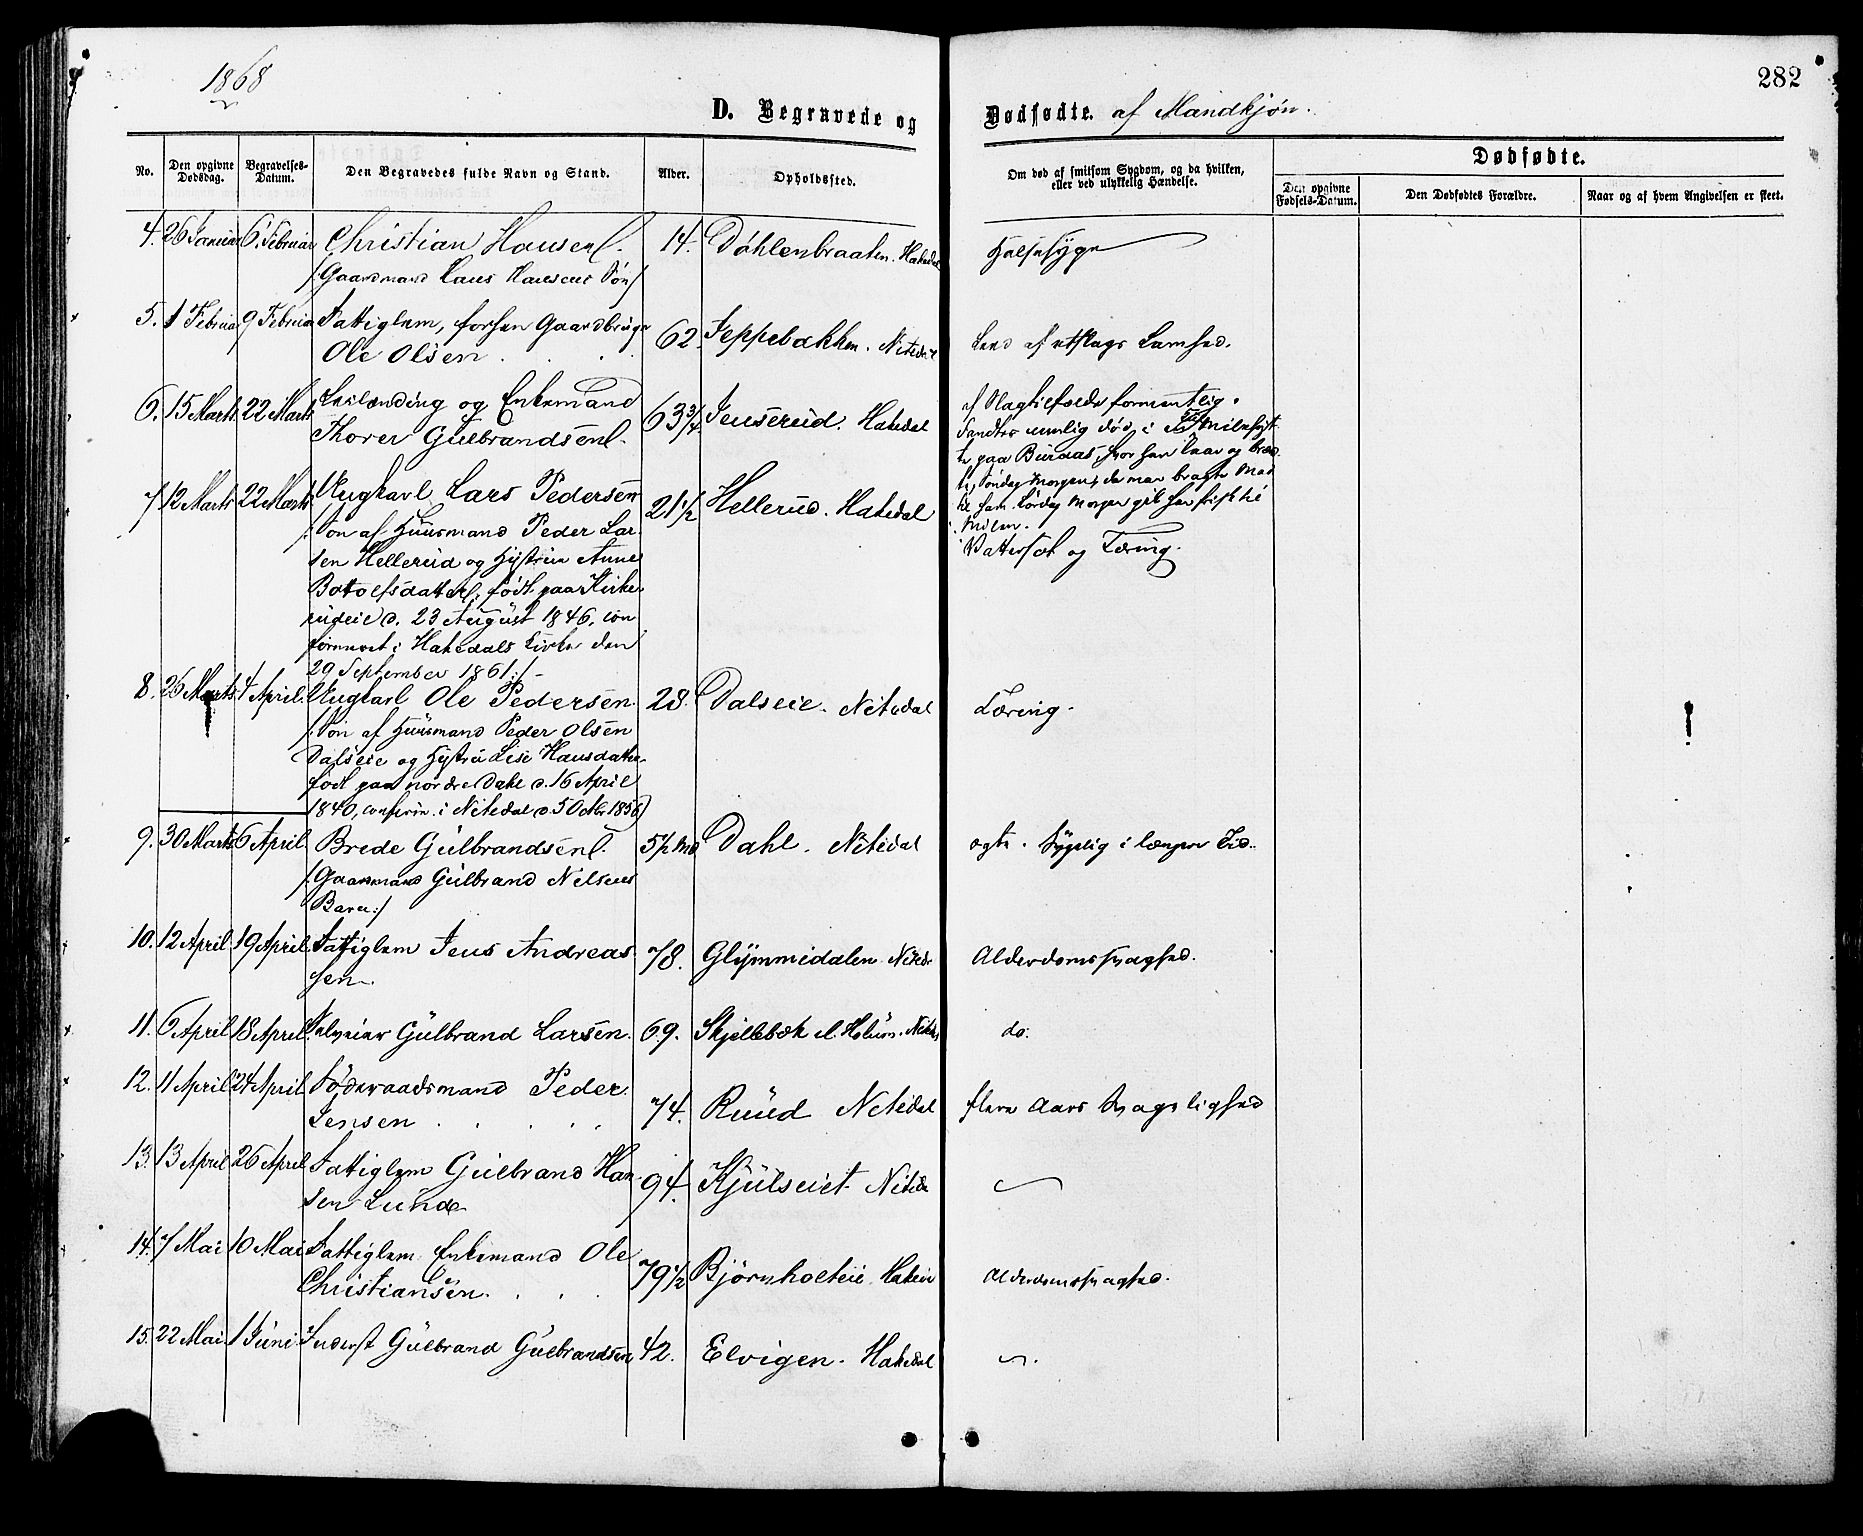 1868
282
D. Begravede og Dødfødte. af Mandkjøn.
No.
Den opgivne Dødsdag.
Begravelses-Datum.
Den Begravedes fulde Navn og Stand.
Alder.
Opholdssted.
Om død af smitsom Sygdom, og da hvilken,
eller ved ulykkelig Hændelse.
Dødfødte.
Den opgivne Fødsels-Datum.
Den Dødfødtes Forældre.
Naar og af hvem Angivelsen er skeet.
4. 26 Januar 6. Februar Christian Hansen. 14. Dahlenbraaten. Hakedal Halssyge
/: Gaardmand Hans Hansens Søn /
5. 1 Februar 9 Februar Fattiglem, forhen Gaardbruger
Ole Olsen . . . 62. Jeppebakken. Nitedal Lam.
6. 15 Marts 22 Marts og Enkemand
Thorer Gulbrandsen. 63 3/4 Jenserud. Hakedal af Slagtilfælde formentlig.
7. 12 Marts 22 Marts Ungkarl Lars Pedersen 21 1/2 Hellerud. Hakedal
/: Søn af Huusmand Peder Lar-
sen Hellerud og Hustru Anne
Botolfsdatter, født paa Kirke-
rudeie d. 23 August 1846, con-
firmeret i Hakedals Kirke den
29 September 1861 :/ -
Vattersot og Tæring.
8. 26 Marts 4 April. Ungkarl Ole Pedersen. 28. Dalseie. Nitedal Tæring.
/: Søn af Huusmand Peder Olsen
Dalseie og Hustru Lise Hansdatter
født paa nordre Dahl d. 16 April
1840, confirm. i Nitedal d. 5 Octbr 1856)
9. 30 Marts 6 April Brede Gulbrandsen. 5 1/2 Md Dahl. Nitedal ægte. Sygelig i længere Tid.
/: Gaardmand Gulbrand Nilsens
Barn :/
10. 12 April 19 April. Fattiglem Jens Andreas-
sen. 78. Glymmedalen. Nitedal Alderdomssvaghed.
11. 6 April 18 April. Gulbrand Larsen. 69. Skjellebæk do.
12. 11 April 24 April Føderaadsmand Peder
Jensen . . . . 74. Ruud Nitedal flere Aars Svagelighed
13. 13 April 26 April Fattiglem Gulbrand Han-
sen Lund 94. Kjulseiet Nitedal
14. 7 Mai 10 Mai Fattiglem Enkemand Ole
Christiansen. . . 79 1/2 Bjørnholteie. Hakedal Alderdomssvaghed.
15. 22 Mai 1 Juni Inderst Gulbrand Gulbrandsen 42. Elvigen. Hakedal